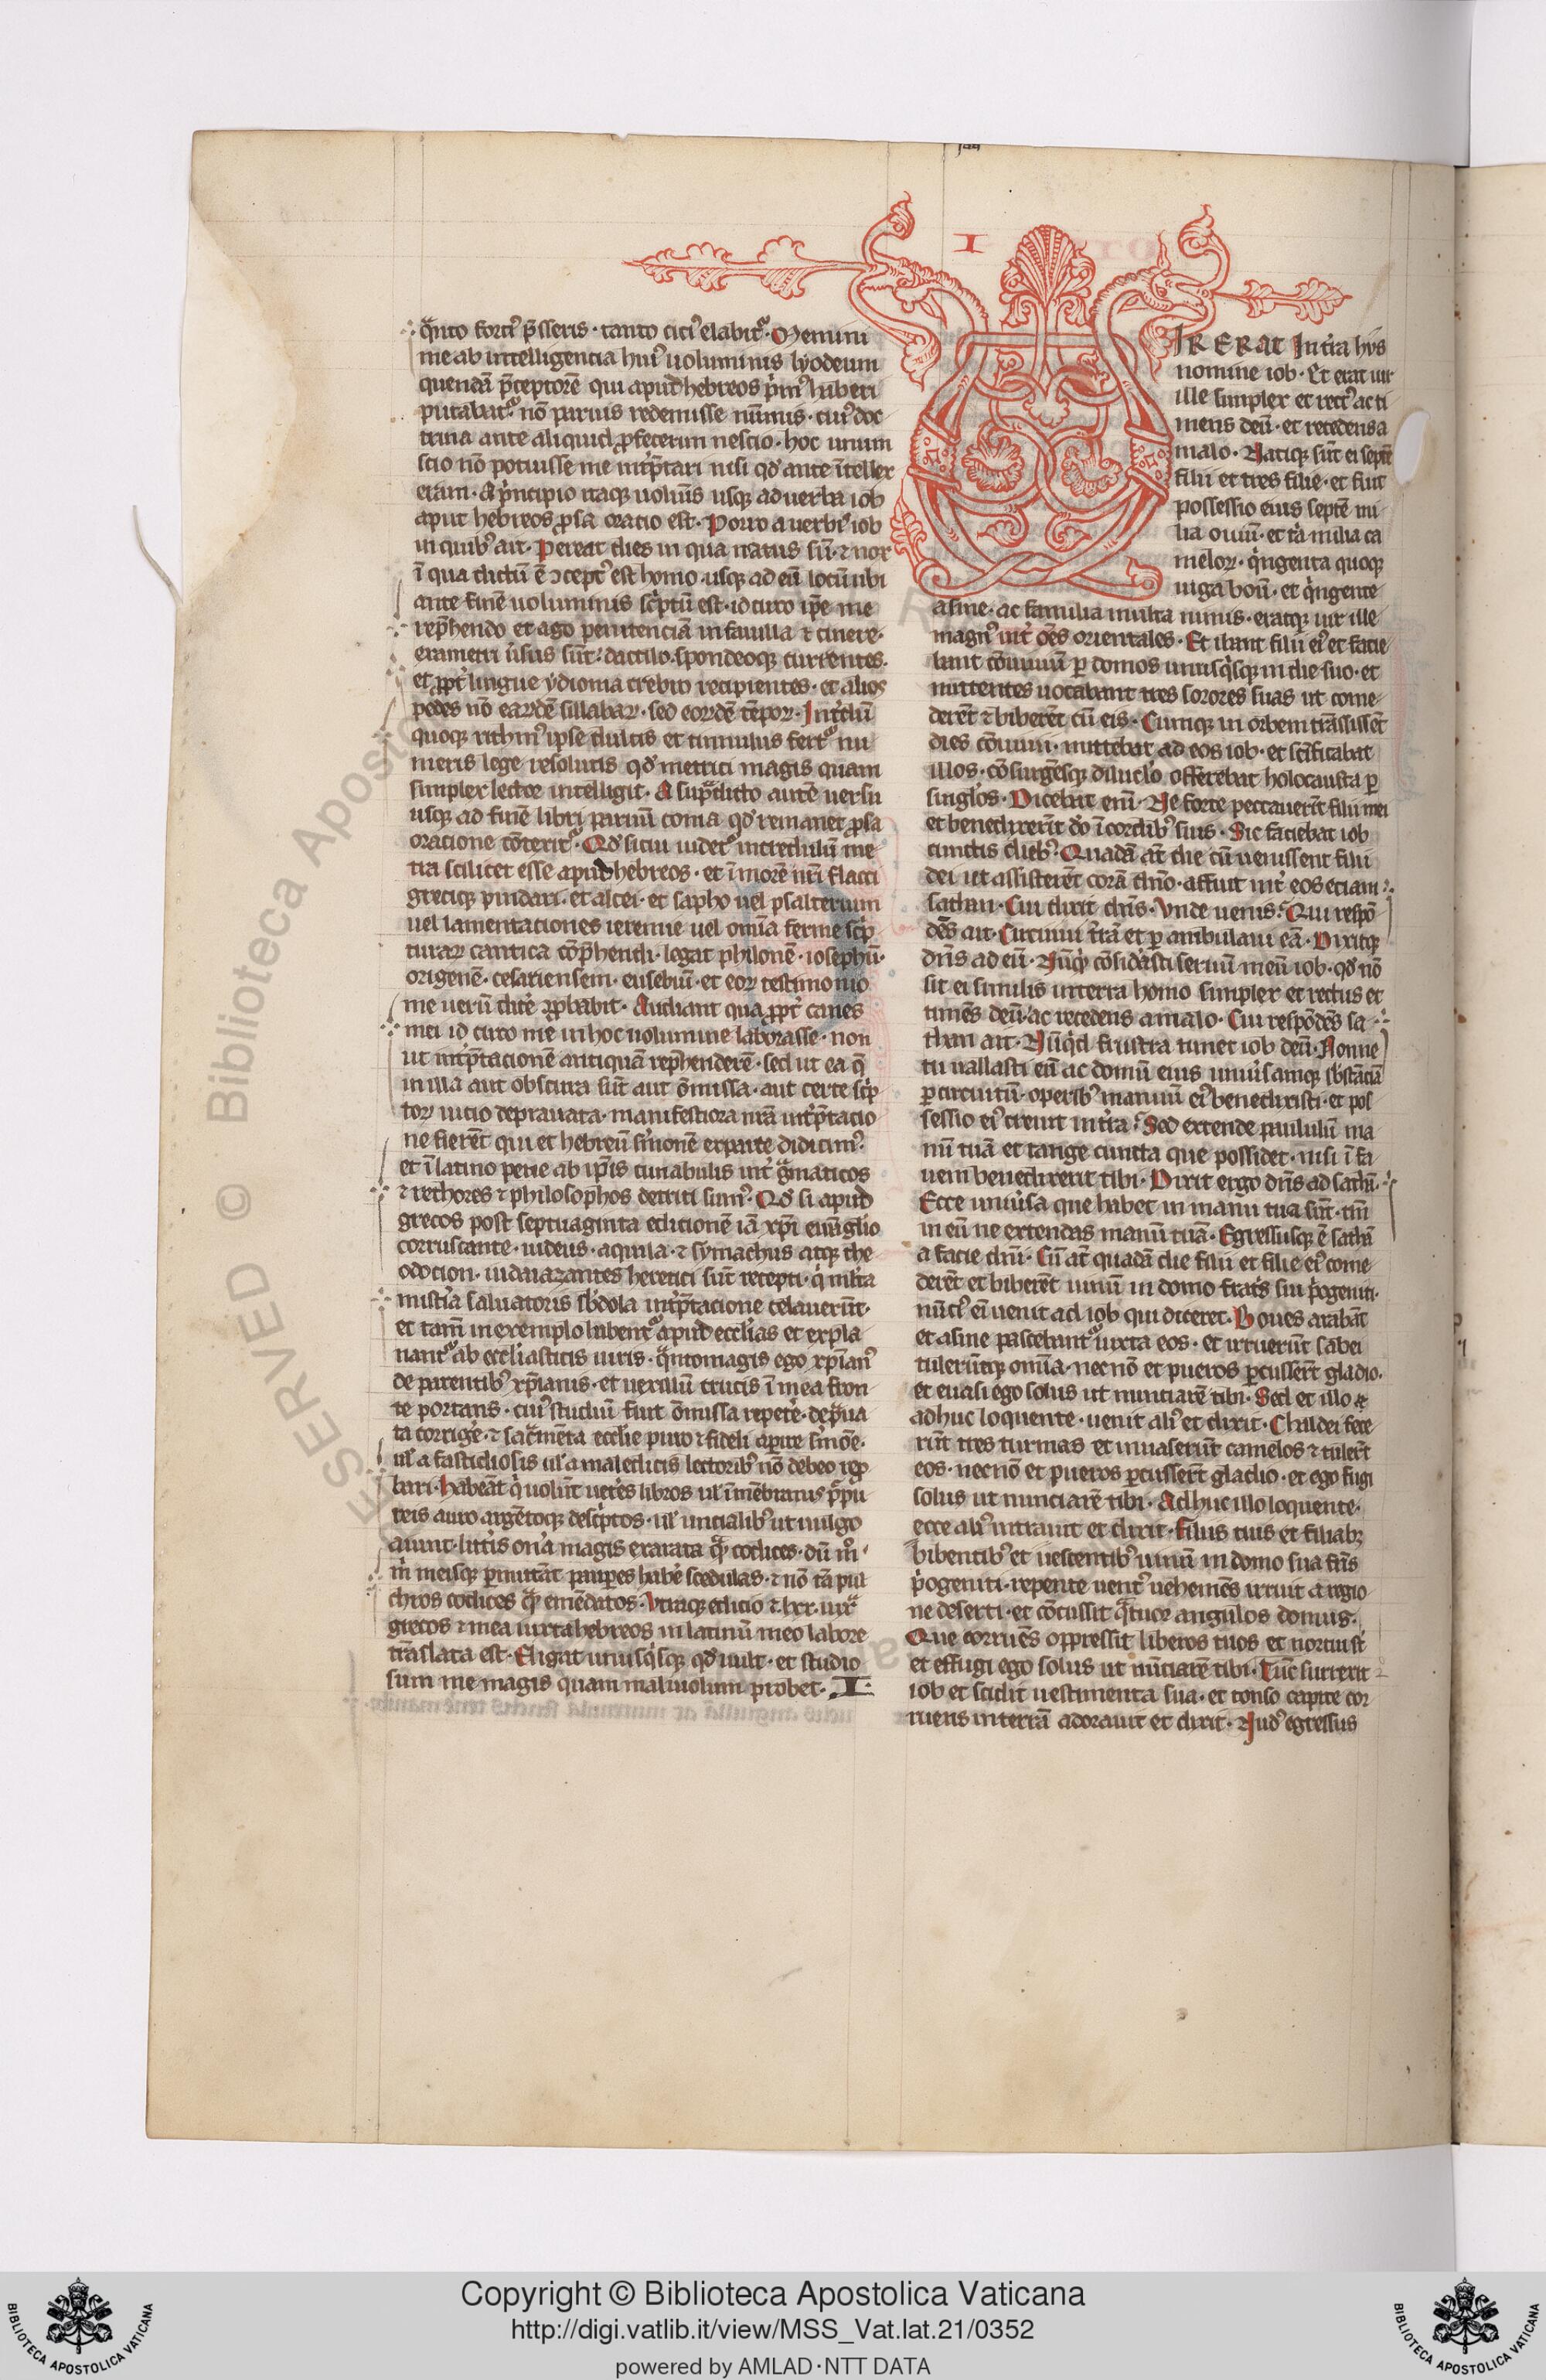 I
q̃nto forti᾽ p̃sseris · tanto citi᾽ elabit᷑ · Memini
me ab intelligencia hui᾽ uoluminis lyddeum
quendã p̃ceptorẽ qui apud hebreos pͥm᾽ haberi
putabat᷑ nõ paruis redemisse nũmis · cui᾽ doc
trina ante aliquid ꝓfecerim nescio · hoc unum
scio nõ potuisse me int̾p̃tari nisi qd᾽ ante ĩtellex
eram · A pͥncipio itaqꝫ uoluĩs usqꝫ ad uerba iob
aput hebreos ꝓsa oratio est · Porro a uerbis iob
in quibꝰ ait · Pereat dies in qua natus sũ · ⁊ nox
ĩ qua dictũ ẽ ↄcept᾽ est homo · usqꝫ ad eũ locũ ubi
ante finẽ uoluminis scͥptũ est · idcirco ip̃e me
rep̃hendo et ago penitenciã in fauilla ⁊ cinere ·
exametri ũsus sũt · dactilo spondeoqꝫ currentes ·
et ꝓpt̾ lingue ydioma crebro recipientes · et alios
pedes nõ earũdẽ sillabaꝝ · sed eorũdẽ tẽpoꝝ · Int̾dũ
quoqꝫ rithm᾽ ipse dulcis et tinnulus fert᷑ nu
meris lege resolutis qd᾽ metrici magis quam
simplex lector intelligit · A sup̃dicto autẽ uersu
usqꝫ ad finẽ libri paruũ coma qd᾽ remanet ꝓsa
oratione cõterit᷑ · Qd᾽ si cui uidet᷑ incredulũ me
tra scilicet esse apud hebreos · et ĩ morẽ nr̃i flacci
greciqꝫ pindari · et alcei · et sapho uel psalterium
uel lamentaciones ieremie uel omĩa ferme scͥp
turaꝝ cantica cõp̃hendi · legat philonẽ · iosephũ ·
origenẽ · cesariensem · eusebiũ · et eoꝝ testimonio
me uerũ dicẽ ꝓbabit · Audiant qua ꝓpt̾ canes
mei id circo me in hoc uolumine laborasse · non
ut int̾p̃tacionẽ antiquã rep̃henderẽ · sed ut ea q̃
in illa aut obscura sũt aut õmissa · aut certe scͥp
toꝝ uicio deprauata · manifestiora nr̃a int̾p̃tacio
ne fierẽt qui et hebreũ s̾monẽ ex parte didicim᾽
et ĩ latino pene ab ip̃is cunabulis int̾ g̃maticos
⁊ rethores ⁊ philosophos detriti sum᾽ · Qd᾽ si apud
grecos post septuaginta edicionẽ iã xp̃i euãglio
corruscante · iudeus · aquila · ⁊ symachus atqꝫ the
odocion · iudaiazantes heretici sũt recepti · qͥ mĩta
misti̾a saluatoris sb̾dola int̾p̃tacione celauerũt ·
et tam̃ in exemplo habent᷑ apud ecclĩas et expla
nant᷑ ab eccl̃iasticis uiris · q̃ntomagis ego xp̃ian᾽
de parentibꝰ xp̃ianis · et uexillũ crucis ĩ mea fron
te portans · cui᾽ studiũ fuit õmissa repete̾ · dep̃ua
ta corrige̾ · ⁊ sac̃mẽta eccl̃ie puro ⁊ fideli apire s̾mõe ·
ul̾ a fastidiosis ul̾ a maledicis lectoribꝰ nõ debeo rep̱
bari · habeãt qͥ uolũt ueteres libros ul̾ ĩ mẽbranis p̃pu
reis auro argẽtoqꝫ descͥptos · ul̾ uncialibꝰ ut uulgo
aiunt · litt̾is on̾a magis exarata q̃ codices · dũ m̾
m̾ meisqꝫ p̱mittãt paup̱es habe̾ scedulas · ⁊ nõ tã pul
chros codices q̃ emẽdatos · Utraqꝫ edicio ⁊ lxx · iux̃
grecos ⁊ mea iuxta hebreos in latinũ meo labore
trãslata est · Eligat unusqͥsqꝫ qd᾽ uult · et studio
sum me magis quam maliuolum probet · I ·
IR ERAt In t̾ra hus
nomine iob · Et erat uir
ille simplex et rect᾽ ac ti
mens deũ · et recedens a
malo · Natiqꝫ sũt ei septẽ
filii et tres filie · et fuit
possessio eius septẽ mi
lia ouiũ · et tͥa milia ca
meloꝝ · qͥngenta quoqꝫ
iuga boũ · et qͥngente
asine · ac familia multa nimis · eratqꝫ uir ille
magn᾽ int̾ oẽs orientales · Et ibant filii ei᾽ et facie
bant cõuiuiũ p̱ domos unusqͥsqꝫ in die suo · et
mittentes uocabant tres sorores suas ut come
derẽt ⁊ biberẽt cũ eis · Cumqꝫ in orbem trãssissẽt
dies cõuiuii · mittebat ad eos iob · et sc̃ificabat
illos · cõsurgẽsqꝫ diluclo offerebat holocausta p̱
singl̾os · Dicebat eni᷑ · Ne forte peccauerĩt filii mei
et benedixerĩt do̾ ĩ cordibꝰ suis · Sic faciebat iob
cunctis diebꝰ · Quadã at̃ die cũ uenissent filii
dei ut assisterẽt corã dn̄o · affuit int̾ eos etiam
sathan · Cui dixit dn̄s · Vnde uenis? Qui respõ
dẽs ait · Circuiui t̾rã et p̱ ambulaui eã · Dixitqꝫ
dn̄s ad eũ · Nũqͥd cõsid̾asti seruũ meũ iob · qd᾽ nõ
sit ei similis in terra homo simplex et rectus et
timẽs deũ · ac recedens a malo · Cui respõdẽs sa
than ait · Nũqͥd frustra timet iob deũ · Nonne
tu uallasti eũ ac domũ eius uniu̾samqꝫ sb̾stãciã
p̱ circuitũ · operibꝰ manuũ ei᾽ benedixisti · et pos
sessio ei᾽ creuit in t̾ra · Sed extende paululũ ma
nũ tuã et tange cuncta que possidet · nisi ĩ fa
ciem benedixerit tibi · Dixit ergo dn̄s ad sathã ·
Ecce uniu̾sa que habet in manu tua sũt · tm̃
in eũ ne extendas manũ tuã · Egressusqꝫ ẽ sathã
a facie dn̄i · Cũ at̃ quadã die filii et filie ei᾽ come
derẽt et biberẽt uinũ in domo frat̾s sui pͥogeniti ·
nũci᾽ eĩ uenit ad iob qui diceret · Boues arabãt
et asine pascebant᷑ iuxta eos · et irruerũt sabei
tulerũtqꝫ omĩa · necnõ et pueros p̱cusserũt gladio ·
et euasi ego solus ut nunciarẽ tibi · Sed et illo
adhuc loquente · uenit ali᾽ et dixit · Chaldei fece
rũt tres turmas et inuaserũt camelos ⁊ tulerũt
eos · necnõ et pueros p̱cusserũt gladio · et ego fugi
solus ut nunciarẽ tibi · Adhuc illo loquente ·
ecce ali᾽ intrauit et dixit · Filiis tuis et filiabꝫ
bibentibꝰ et uescentibꝰ uinũ in domo sua fr̃is
pͥogeniti · repente uent᾽ uehemẽs irruit a regio
ne deserti · et cõcussit q̃tuor angulos domus ·
Que corruẽs oppressit liberos tuos et mortui sũt
et effugi ego solus ut nũciarẽ tibi · Tũc surrexit
iob et scidit uestimenta sua · et tonso capite cor
ruens in terrã adorauit et dixit · Nud᾽ egressus
Copyright © Biblioteca Apostolica Vaticana
http://digi.vatlib.it/view/MSS_Vat.lat.21/0352
powered by AMLAD·NTT DATA
BIBLIOTECA APOSTOLICA VATICANA
BIBLIOTECA APOSTOLICA VATICANA